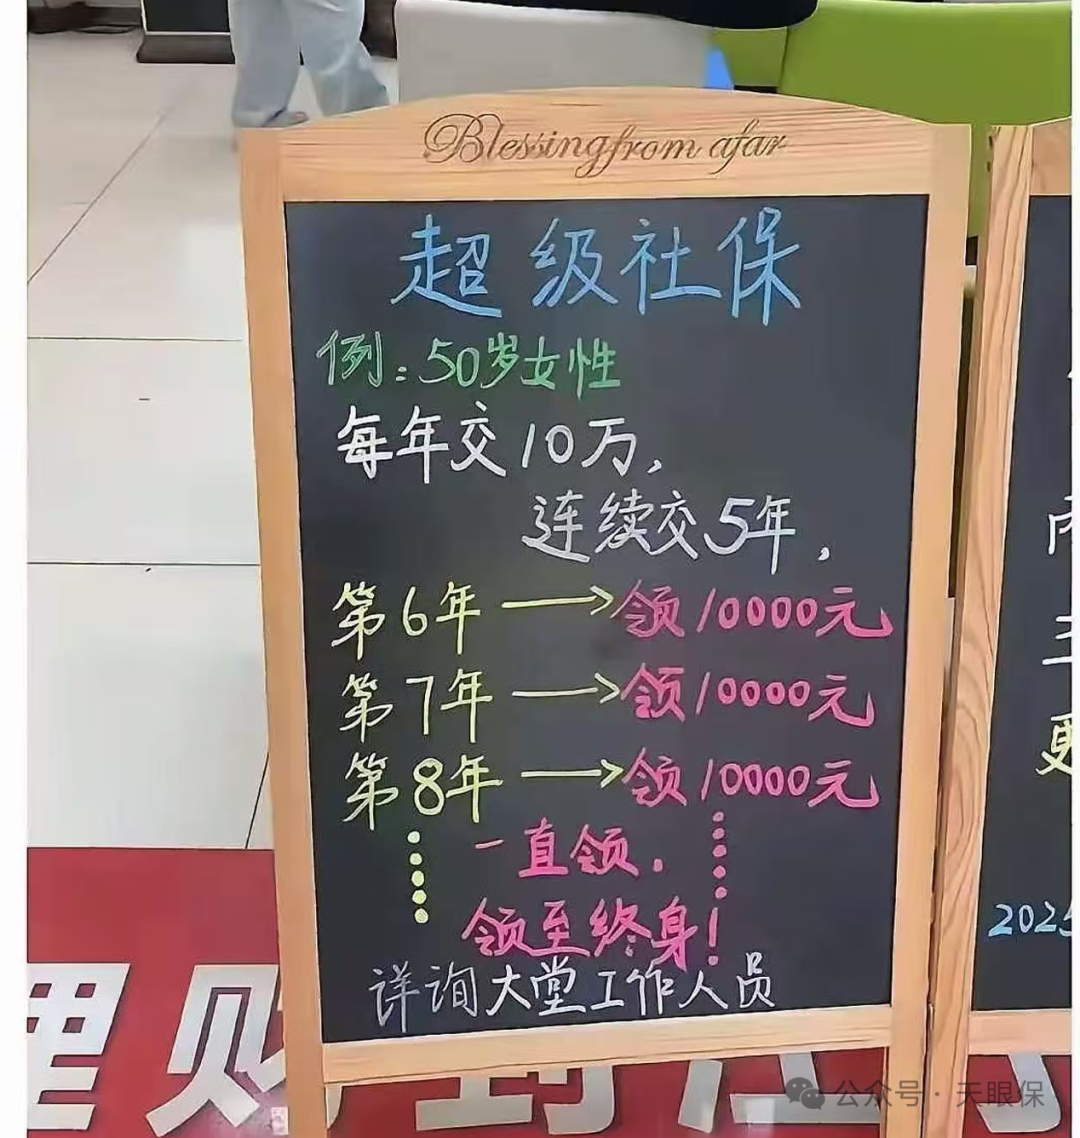 Blessing from afar
超级社保
例：50岁女性
每年交10万，
连续交5年，
第6年→领10000元
第7年→领10000元
第8年→领10000元
一直领．
领至终身！
详询大堂工作人员
2025
理财
公众号·天眼保